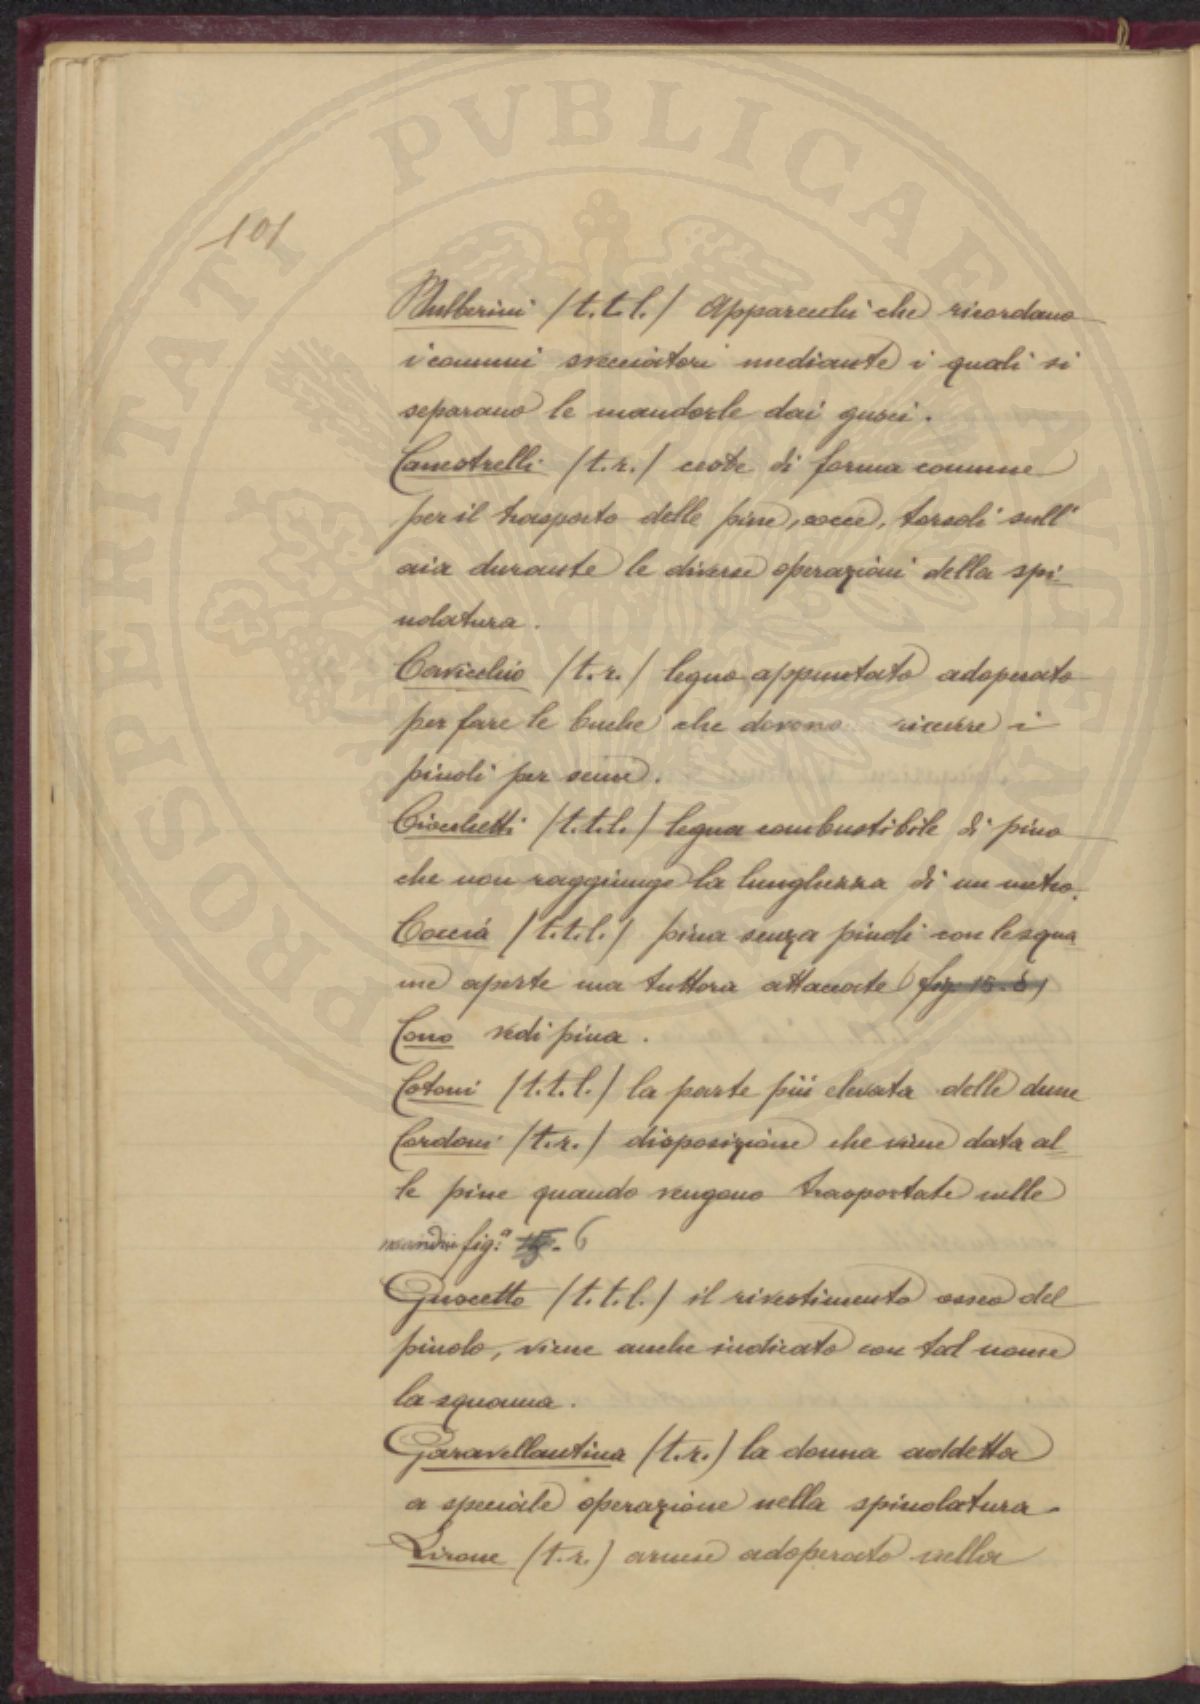 PROSPERITATI PVBLICAE AVGENDAE
101
Bulberini (t.t.l.) Apparecchi che ricordano
i comuni svecciatori mediante i quali si
separano le mandorle dai gusci.
Canestrelli (t.r.) ceste di forma comune
per il trasporto delle pine, cocce, torsoli sull'
aia durante le diverse operazioni della spi-
nolatura.
Cavicchio (t.r.) legno appuntato adoperato
per fare le buche che devono ricevere i
pinoli per seme.
Ciocchetti (t.t.l.) legna combustibile di pino
che non raggiunge la lunghezza di un metro.
Coccia (t.t.l.) pina senza pinoli con le squa
me aperte ma tuttora attaccate (fig. 15. b)
Cono vedi pina.
Cotoni (t.t.l.) la parte più elevata delle dune
Cordoni (t.r.) disposizione che viene data al-
le pine quando vengono trasportate nelle
mandrie fig.ª 6
Guscetto (t.t.l.) il rivestimento osseo del
pinolo, viene anche indicato con tal nome
la squama.
Garavellantina (t.r.) la donna addetta
a speciale operazione nella spinolatura.
Lirone (t.r.) arnese adoperato nella